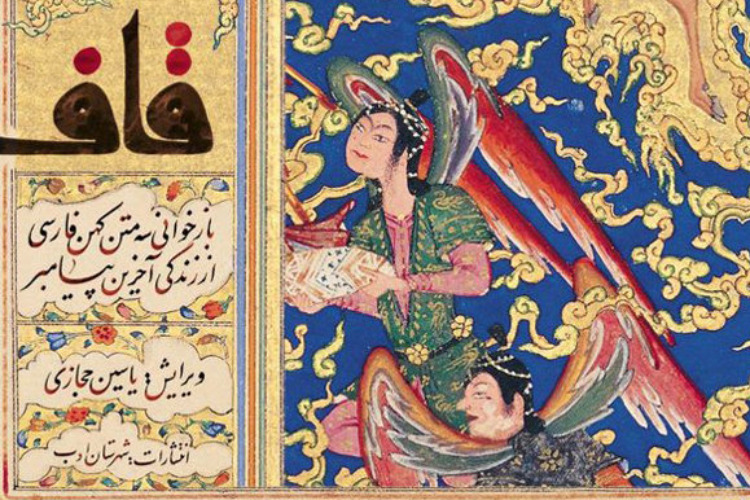 قاف
بازخوانی سه متن کهن فارسی
از زندگی آخرین پیامبر
ویرایش: یاسین حجازی
انتشارات: شهرستان ادب